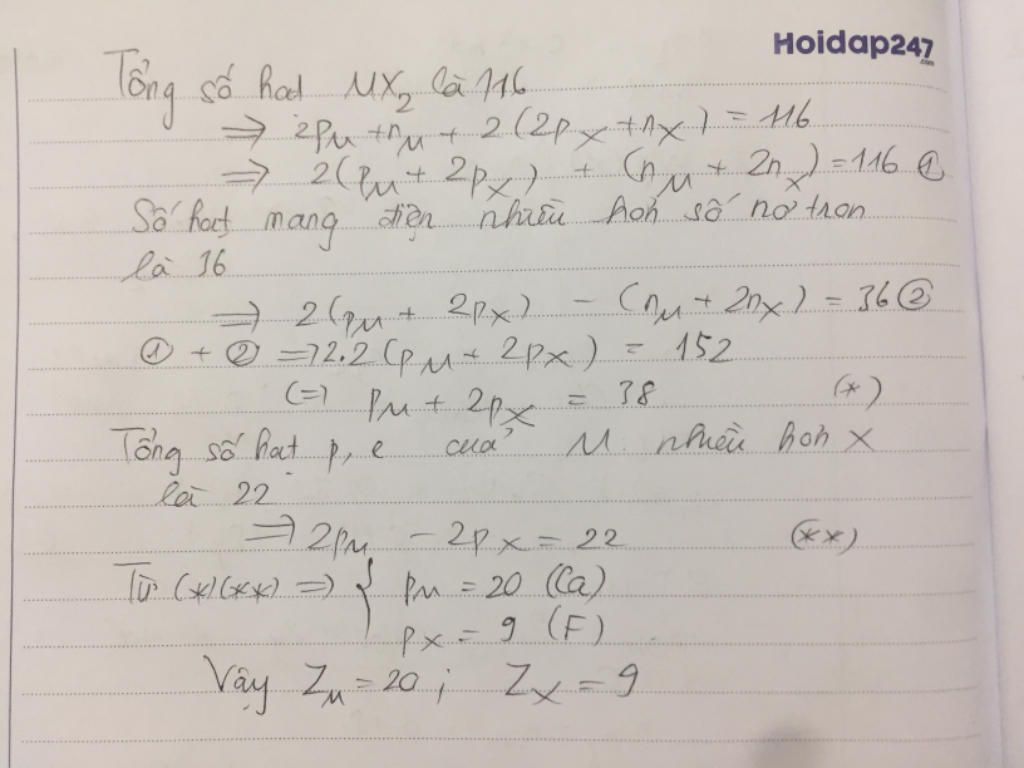 Hoidap247
.com
Tổng số hạt MX₂ là 116
⇒ 2pM + nM + 2(2pX + nX) = 116
⇒ 2(pM + 2pX) + (nM + 2nX) = 116 ①
Số hạt mang điện nhiều hơn số nơ tron
là 36
⇒ 2(pM + 2pX) - (nM + 2nX) = 36 ②
① + ② ⇒ 2.2(pM + 2pX) = 152
(=) pM + 2pX = 38 (*)
Tổng số hạt p, e của M nhiều hơn X
là 22
⇒ 2pM - 2pX = 22 (**)
Từ (*)(**) ⇒ { pM = 20 (Ca)
pX = 9 (F)
Vậy ZM = 20 ; ZX = 9